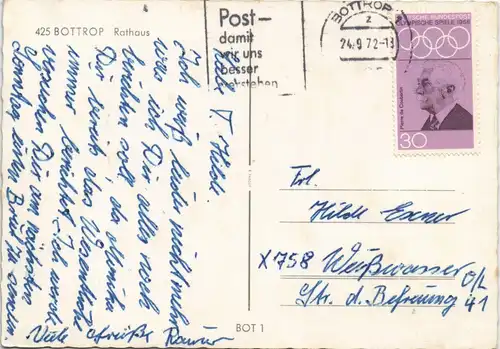 425 BOTTROP Rathaus
Post-
damit
wir uns
besser
verstehen
BOTTROP
z
24.9.72-13
DEUTSCHE BUNDESPOST
OLYMPISCHE SPIELE 1968
Pierre de Coubertin
30
Liebe T. Hilde.
Ich weiß heute nicht mehr
was ich Dir alles noch
berichten soll, da
Dir
immer berichtet. Ich werde
versuchen Dir am nächsten
Sonntag einen Brief zu senden.
Viele Grüße Rainer
Frl.
Hilde Exner
X 758 Weißwasser O/L
Str. d. Befreiung 41
BOT 1